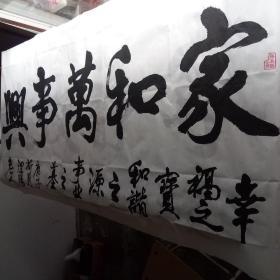 家和萬事興
幸福之寶和諧之源事業之基